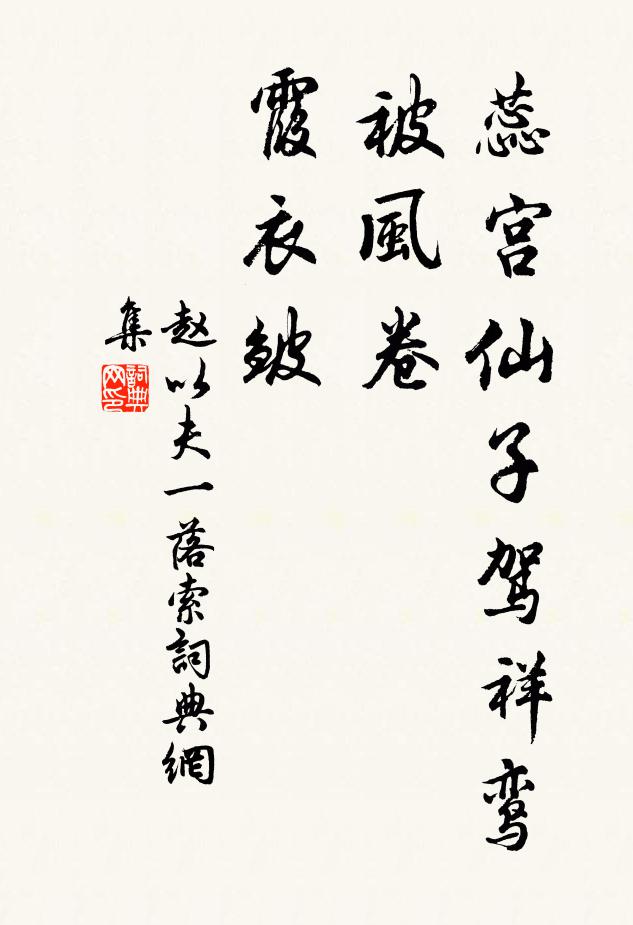 蕊宫仙子驾祥鸾
被風卷
霞衣皱
赵以夫一落索詞典網
集
詞典网印